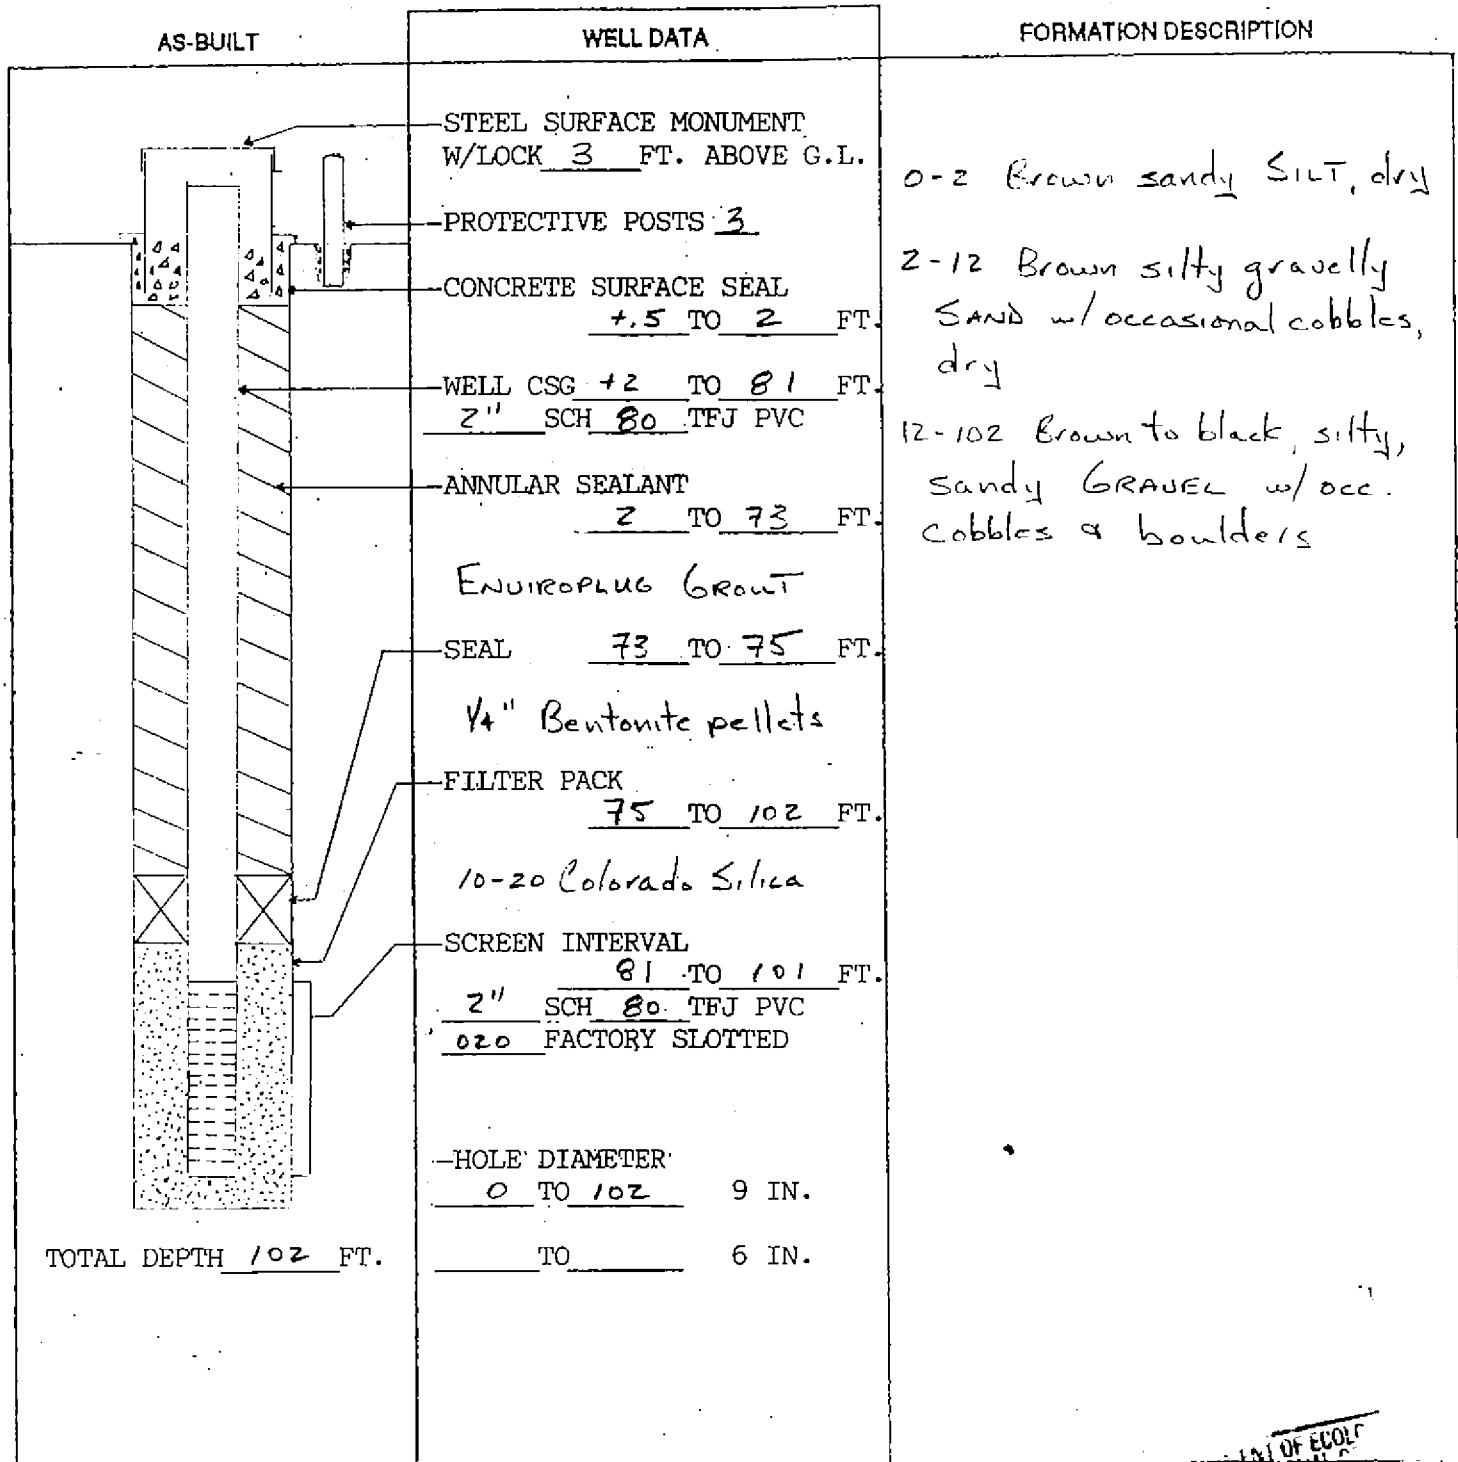 AS-BUILT
WELL DATA
FORMATION DESCRIPTION
STEEL SURFACE MONUMENT
W/LOCK 3 FT. ABOVE G.L.
PROTECTIVE POSTS 3
CONCRETE SURFACE SEAL
+.5 TO 2 FT.
WELL CSG +2 TO 81 FT.
2" SCH 80 TFJ PVC
ANNULAR SEALANT
2 TO 73 FT.
ENVIROPLUG GROUT
SEAL 73 TO 75 FT.
1/4" Bentonite pellets
FILTER PACK
75 TO 102 FT.
10-20 Colorado Silica
SCREEN INTERVAL
81 TO 101 FT.
2" SCH 80 TFJ PVC
020 FACTORY SLOTTED
HOLE DIAMETER
0 TO 102 9 IN.
TO 6 IN.
TOTAL DEPTH 102 FT.
0-2 Brown sandy SILT, dry
2-12 Brown silty gravelly
SAND w/ occasional cobbles,
dry
12-102 Brown to black, silty,
sandy GRAVEL w/ occ.
cobbles & boulders
OF ECOL